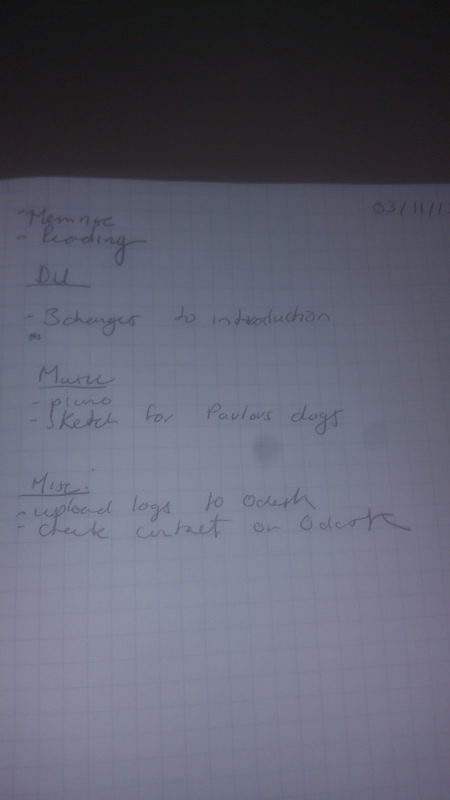 03/11/1
- Reading
DU
- 3 changes to introduction
Music
- piano
- Sketch for Pavlovs dogs
Misc.
- upload logs to Odesk
- create contract on Odesk